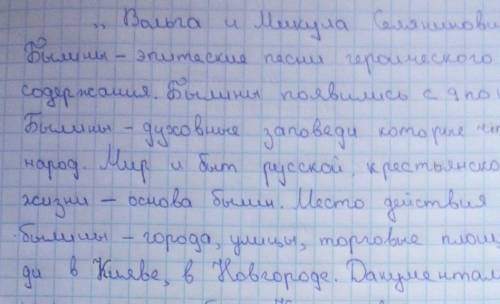 „ Вольга и Микула Селянинови
Былины – эпические песни героического
содержания. Былины появились с эпо
Былины – духовные заповеди которые чт
народ. Мир и быт русской крестьянско
жизни – основа былин. Место действия
былины – города, улицы, торговые площ
ди в Киеве, в Новгороде. Дакументал